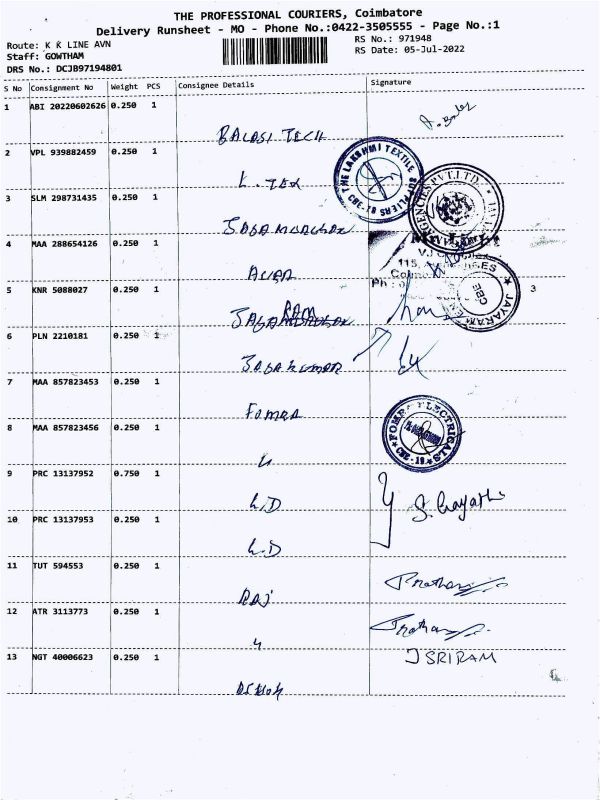 THE PROFESSIONAL COURIERS, Coimbatore
Delivery Runsheet - MO - Phone No.:0422-3505555 - Page No.:1
Route: K K LINE AVN
RS No.: 971948
Staff: GOWTHAM
RS Date: 05-Jul-2022
DRS No.: DCJB97194801
S No Consignment No Weight PCS Consignee Details Signature
1 ABI 20220602626 0.250 1
BALAJI TECH
2 VPL 939882459 0.250 1
L. TEX
THE LAKSHMI TEXTILE SUPPLIERS CBE-18
3 SLM 298731435 0.250 1
4 MAA 288654126 0.250 1
115,
Ph :
JAYARAM
CBE
3
5 KNR 5088027 0.250 1
RAM
6 PLN 2210181 0.250 1
7 MAA 857823453 0.250 1
FOMRA
8 MAA 857823456 0.250 1
FOMRA ELECTRICALS CBE-18
9 PRC 13137952 0.750 1
L.D
S. Gayathri
10 PRC 13137953 0.250 1
L.D
11 TUT 594553 0.250 1
RAJ
12 ATR 3113773 0.250 1
13 NGT 40006623 0.250 1
J SRIRAM